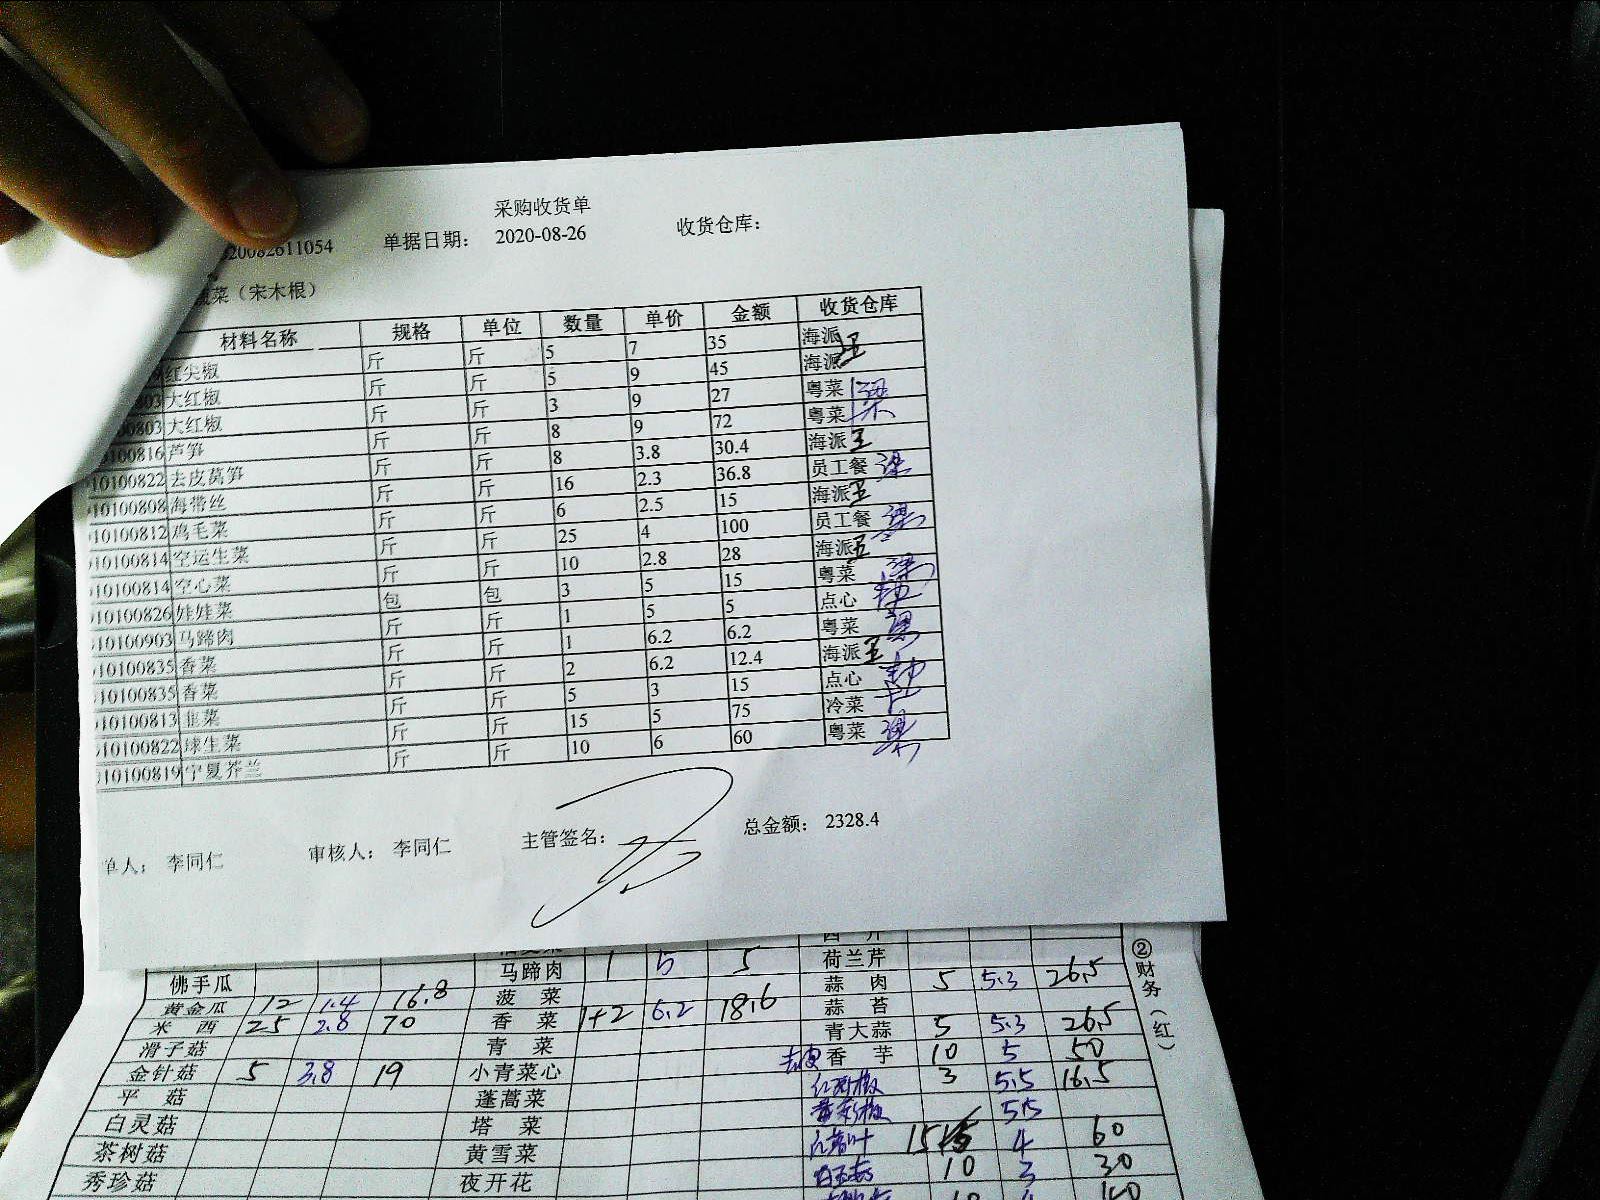 采购收货单
20082611054 单据日期： 2020-08-26 收货仓库：
菜（宋木根）
材料名称 规格 单位 数量 单价 金额 收货仓库
红尖椒 斤 斤 5 7 35 海派 王
803 大红椒 斤 斤 5 9 45 海派
00803 大红椒 斤 斤 3 9 27 粤菜 梁
10100816 芦笋 斤 斤 8 9 72 粤菜
010100822 去皮莴笋 斤 斤 8 3.8 30.4 海派 王
010100808 海带丝 斤 斤 16 2.3 36.8 员工餐 梁
010100812 鸡毛菜 斤 斤 6 2.5 15 海派 王
010100814 空运生菜 斤 斤 25 4 100 员工餐 梁
010100814 空心菜 斤 斤 10 2.8 28 海派 王
010100826 娃娃菜 包 包 3 5 15 粤菜 梁
010100903 马蹄肉 斤 斤 1 5 5 点心
010100835 香菜 斤 斤 1 6.2 6.2 粤菜 梁
010100835 香菜 斤 斤 2 6.2 12.4 海派 王
010100813 韭菜 斤 斤 5 3 15 点心
010100822 球生菜 斤 斤 15 5 75 冷菜
010100819 宁夏芥兰 斤 斤 10 6 60 粤菜 梁
单人： 李同仁 审核人： 李同仁 主管签名： 总金额： 2328.4
②财务（红）
佛手瓜 马蹄肉 1 5 5 荷兰芹
黄金瓜 12 1.4 16.8 菠菜 蒜肉 5 5.3 26.5
米西 25 2.8 70 香菜 1+2 6.2 18.6 蒜苔
滑子菇 青菜 青大蒜 5 5.3 26.5
金针菇 5 3.8 19 小青菜心 去皮 香芋 10 5 50
平菇 蓬蒿菜 3 5.5 16.5
白灵菇 塔菜 5.5
茶树菇 黄雪菜 15 4 60
秀珍菇 夜开花 10 3 30